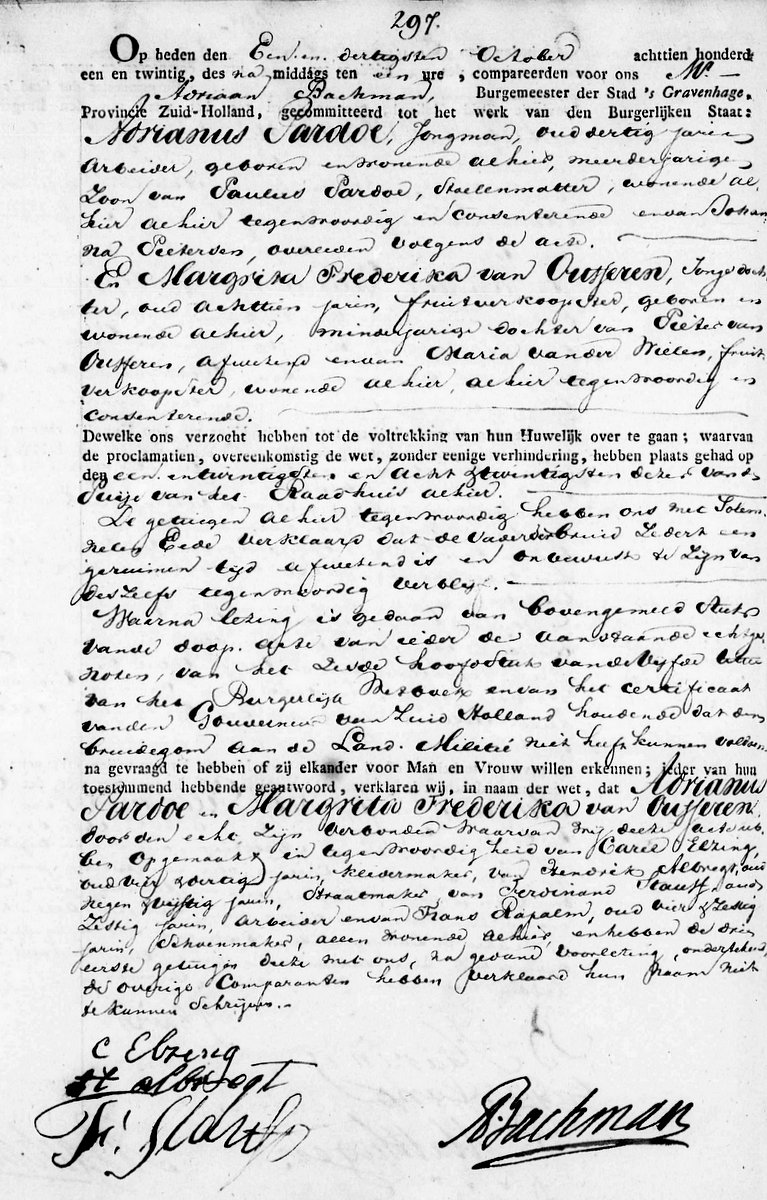 297.
Op heden den Een en dertigsten October achttien honderd
een en twintig, des na middags ten een ure, compareerden voor ons Mr.
Adriaan Bachman, Burgemeester der Stad 's Gravenhage,
Provincie Zuid-Holland, gecommitteerd tot het werk van den Burgerlijken Staat:
Adrianus Pardoe, Jongman, oud dertig jaren
arbeider, geboren en wonende alhier, meerderjarige
Zoon van Paulus Pardoe, Stoelenmatter, wonende al-
hier alhier tegenwoordig en consenterende en van Johan
na Pietersen, overleden volgens de acte.
En Margrita Frederika van Ousseren, Jonge doch-
ter, oud achttien jaren, fruitverkoopster, geboren en
wonende alhier, minderjarige dochter van Pieter van
Ousseren, afwezend en van Maria van der Wielen, fruit
verkoopster, wonende alhier, alhier tegenwoordig en
consenterende.
Dewelke ons verzocht hebben tot de voltrekking van hun Huwelijk over te gaan; waarvan
de proclamatien, overeenkomstig de wet, zonder eenige verhindering, hebben plaats gehad op
den een en twintigsten en acht & twintigsten dezer van de
Puije van het Raadhuis alhier.
De getuigen alhier tegenwoordig hebben ons met Solem-
nelen Eede verklaard dat de Vader der bruid zedert een
geruimen tijd afwezend is en onbewust te zijn van
deszelfs tegenwoordig verblijf.
Waarna lezing is gedaan van bovengemeld Stuk
van de doop acte van ieder der aanstaande echtge
noten, van het zesde hoofdstuk van de Vijfde titel
van het Burgerlijk Wetboek en van het certificaat
van den Gouverneur van Zuid Holland houdende dat den
bruidegom aan de Land Militie heeft kunnen voldoen
na gevraagd te hebben of zij elkander voor Man en Vrouw willen erkennen; ieder van hun
toestemmend hebbende geantwoord, verklaren wij, in naam der wet, dat Adrianus
Pardoe en Margrita Frederika van Ousseren
door den echt zijn verbonden waarvan wij deeze acte heb
ben opgemaakt in tegenwoordigheid van Carel Elzing
oud vier & dertig jaren, kledermaker, van Hendrik Albregt, oud
negen & vijftig jaren, Straatmaker van Ferdinand oud
Zestig jaren, arbeider en van Frans oud vier & zestig
jaren, Schoenmaker, allen wonende alhier, en hebben de drie
eerste getuigen deeze met ons, na gedane voorlezing, onderteekend,
de overige Comparanten hebben verklaard hun naam niet
te kunnen Schrijven.
C Elzeng
H albregt
F:
ABachman